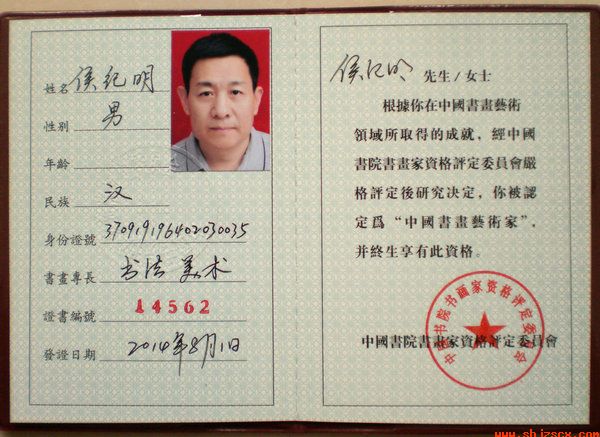 姓名 侯纪明
性别 男
年齡
民族 汉
身份證號 370919196402030035
書畫專長 书法 美术
證書編號 14562
發證日期 2014年8月1日
侯纪明 先生/女士
根據你在中國書畫藝術
領域所取得的成就，經中國
書院書畫家資格評定委員會嚴
格評定後研究决定，你被認
定爲“中國書畫藝術家”，
并終生享有此資格。
中国书院书画家资格评定委员会
中國書院書畫家資格評定委員會
www.shjzscx.com